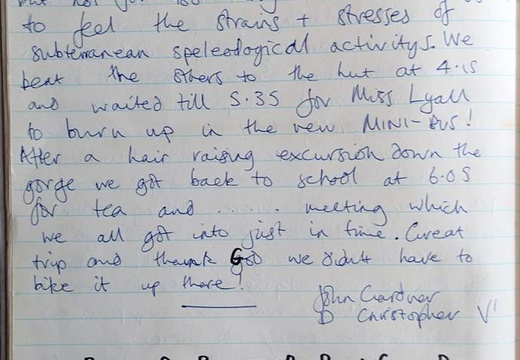 to feel the strains + stresses of
subterranean speleological activitys. We
beat the others to the hut at 4.15
and waited till 5.35 for Miss Lyall
to burn up in the new MINI-BUS!
After a hair raising excursion down the
gorge we got back to school at 6.05
for tea and ...... meeting which
we all got into just in time. Great
trip and thank God we didnt have to
bike it up there!
John Gardner
D Christopher V'